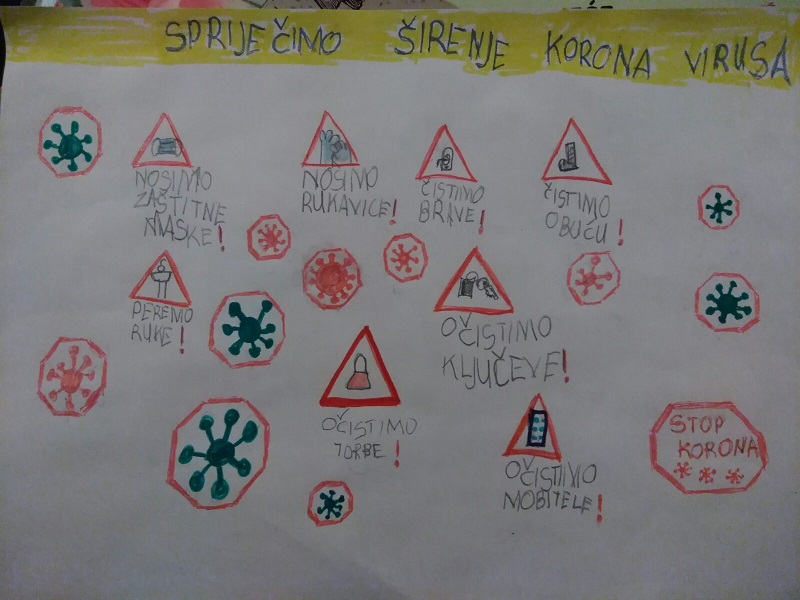 SPRIJEČIMO ŠIRENJE KORONA VIRUSA
NOSIMO
ZAŠTITNE
MASKE!
NOSIMO
RUKAVICE!
ČISTIMO
BRAVE!
ČISTIMO
OBUĆU!
PEREMO
RUKE!
OČISTIMO
KLJUČEVE!
OČISTIMO
TORBE!
OČISTIMO
MOBITELE!
STOP
KORONA